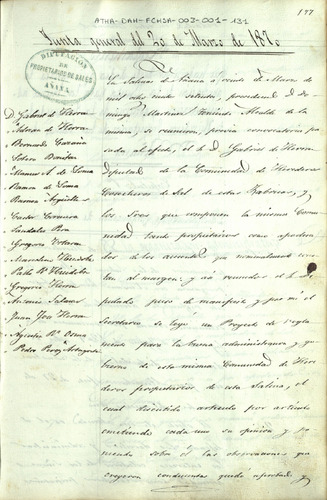 ATHA-DAH-FCHSA-003-001-131
177
Junta general del 20 de Marzo de 1870
DIPUTACION
DE
PROPIETARIOS DE SALES
AÑANA
D. Gabriel de Herran
Adrian de Herran
Bernardo
Isidoro
Manuel A. de Loma
Ramon de Loma
Ramon Argüelles
Castor
Santalos
Gregorio
Marcelino
Pablo Rz
Gregorio Herran
Antonio Salazar
Juan José Herran
Agustin Rz Osma
Pedro Perez
En Salinas de Añana á veinte de Marzo de
mil ochocientos setenta, presididos p. D. Do-
mingo Martinez Alcalde de la
misma, se reunieron, previa convocatoria pa-
sada al efecto, el S. D. Gabriel de Herran
Diputado de la Comunidad de Herederos
Cosecheros de Sal de estas Fabricas, y
los Sres que componen la misma Comu-
nidad tanto propietarios como apodera-
dos de los ausentes que nominalmente cons-
tan al margen; y asi reunidos el S. Di-
putado puso de manifiesto y por mi el
Secretario se leyo un Proyecto de regla-
mento para la buena administracion y go-
bierno de esta misma Comunidad de Here-
deros propietarios de esta Salina, el
cual discutido articulo por articulo
emitiendo cada uno su opinion y po-
niendo sobre el las observaciones que
creyeron convenientes quedó aprobado y